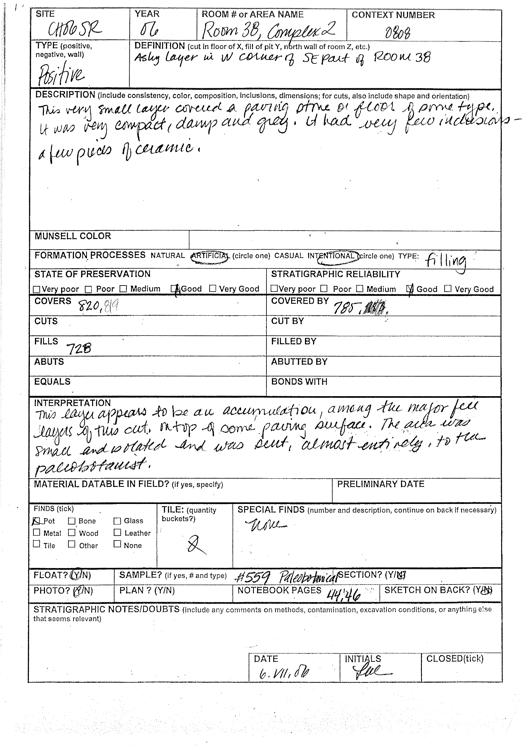 SITE YEAR ROOM # or AREA NAME CONTEXT NUMBER
CH06SR 06 Room 38, Complex 2 0808
TYPE (positive, negative, wall) DEFINITION (cut in floor of X, fill of pit Y, north wall of room Z, etc.)
Positive Ashy layer in W corner of SE part of Room 38
DESCRIPTION (include consistency, color, composition, inclusions, dimensions; for cuts, also include shape and orientation)
This very small layer covered a paving stone or floor of some type.
It was very compact, damp and grey. It had very few inclusions -
a few pieces of ceramic.
MUNSELL COLOR
FORMATION PROCESSES NATURAL ARTIFICIAL (circle one) CASUAL INTENTIONAL (circle one) TYPE: filling
STATE OF PRESERVATION STRATIGRAPHIC RELIABILITY
Very poor Poor Medium Good Very Good Very poor Poor Medium Good Very Good
COVERS 820, 819 COVERED BY 785,
CUTS CUT BY
FILLS 728 FILLED BY
ABUTS ABUTTED BY
EQUALS BONDS WITH
INTERPRETATION
This layer appears to be an accumulation, among the major fill
layers of this cut, on top of some paving surface. The area was
small and isolated and was sent, almost entirely, to the
paleobotanist.
MATERIAL DATABLE IN FIELD? (if yes, specify) PRELIMINARY DATE
FINDS (tick) TILE: (quantity buckets?) SPECIAL FINDS (number and description, continue on back if necessary)
Pot Bone Glass none
Metal Wood Leather
Tile Other None
FLOAT? (Y/N) SAMPLE? (if yes, # and type) #559 Paleobotanical SECTION? (Y/N)
PHOTO? (Y/N) PLAN ? (Y/N) NOTEBOOK PAGES 44,46 SKETCH ON BACK? (Y/N)
STRATIGRAPHIC NOTES/DOUBTS (include any comments on methods, contamination, excavation conditions, or anything else
that seems relevant)
DATE INITIALS CLOSED(tick)
6.VII.06